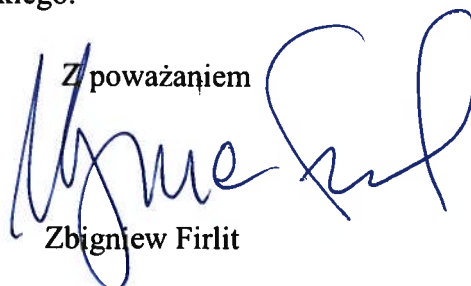 kiego.
Z poważaniem
Zbigniew Firlit